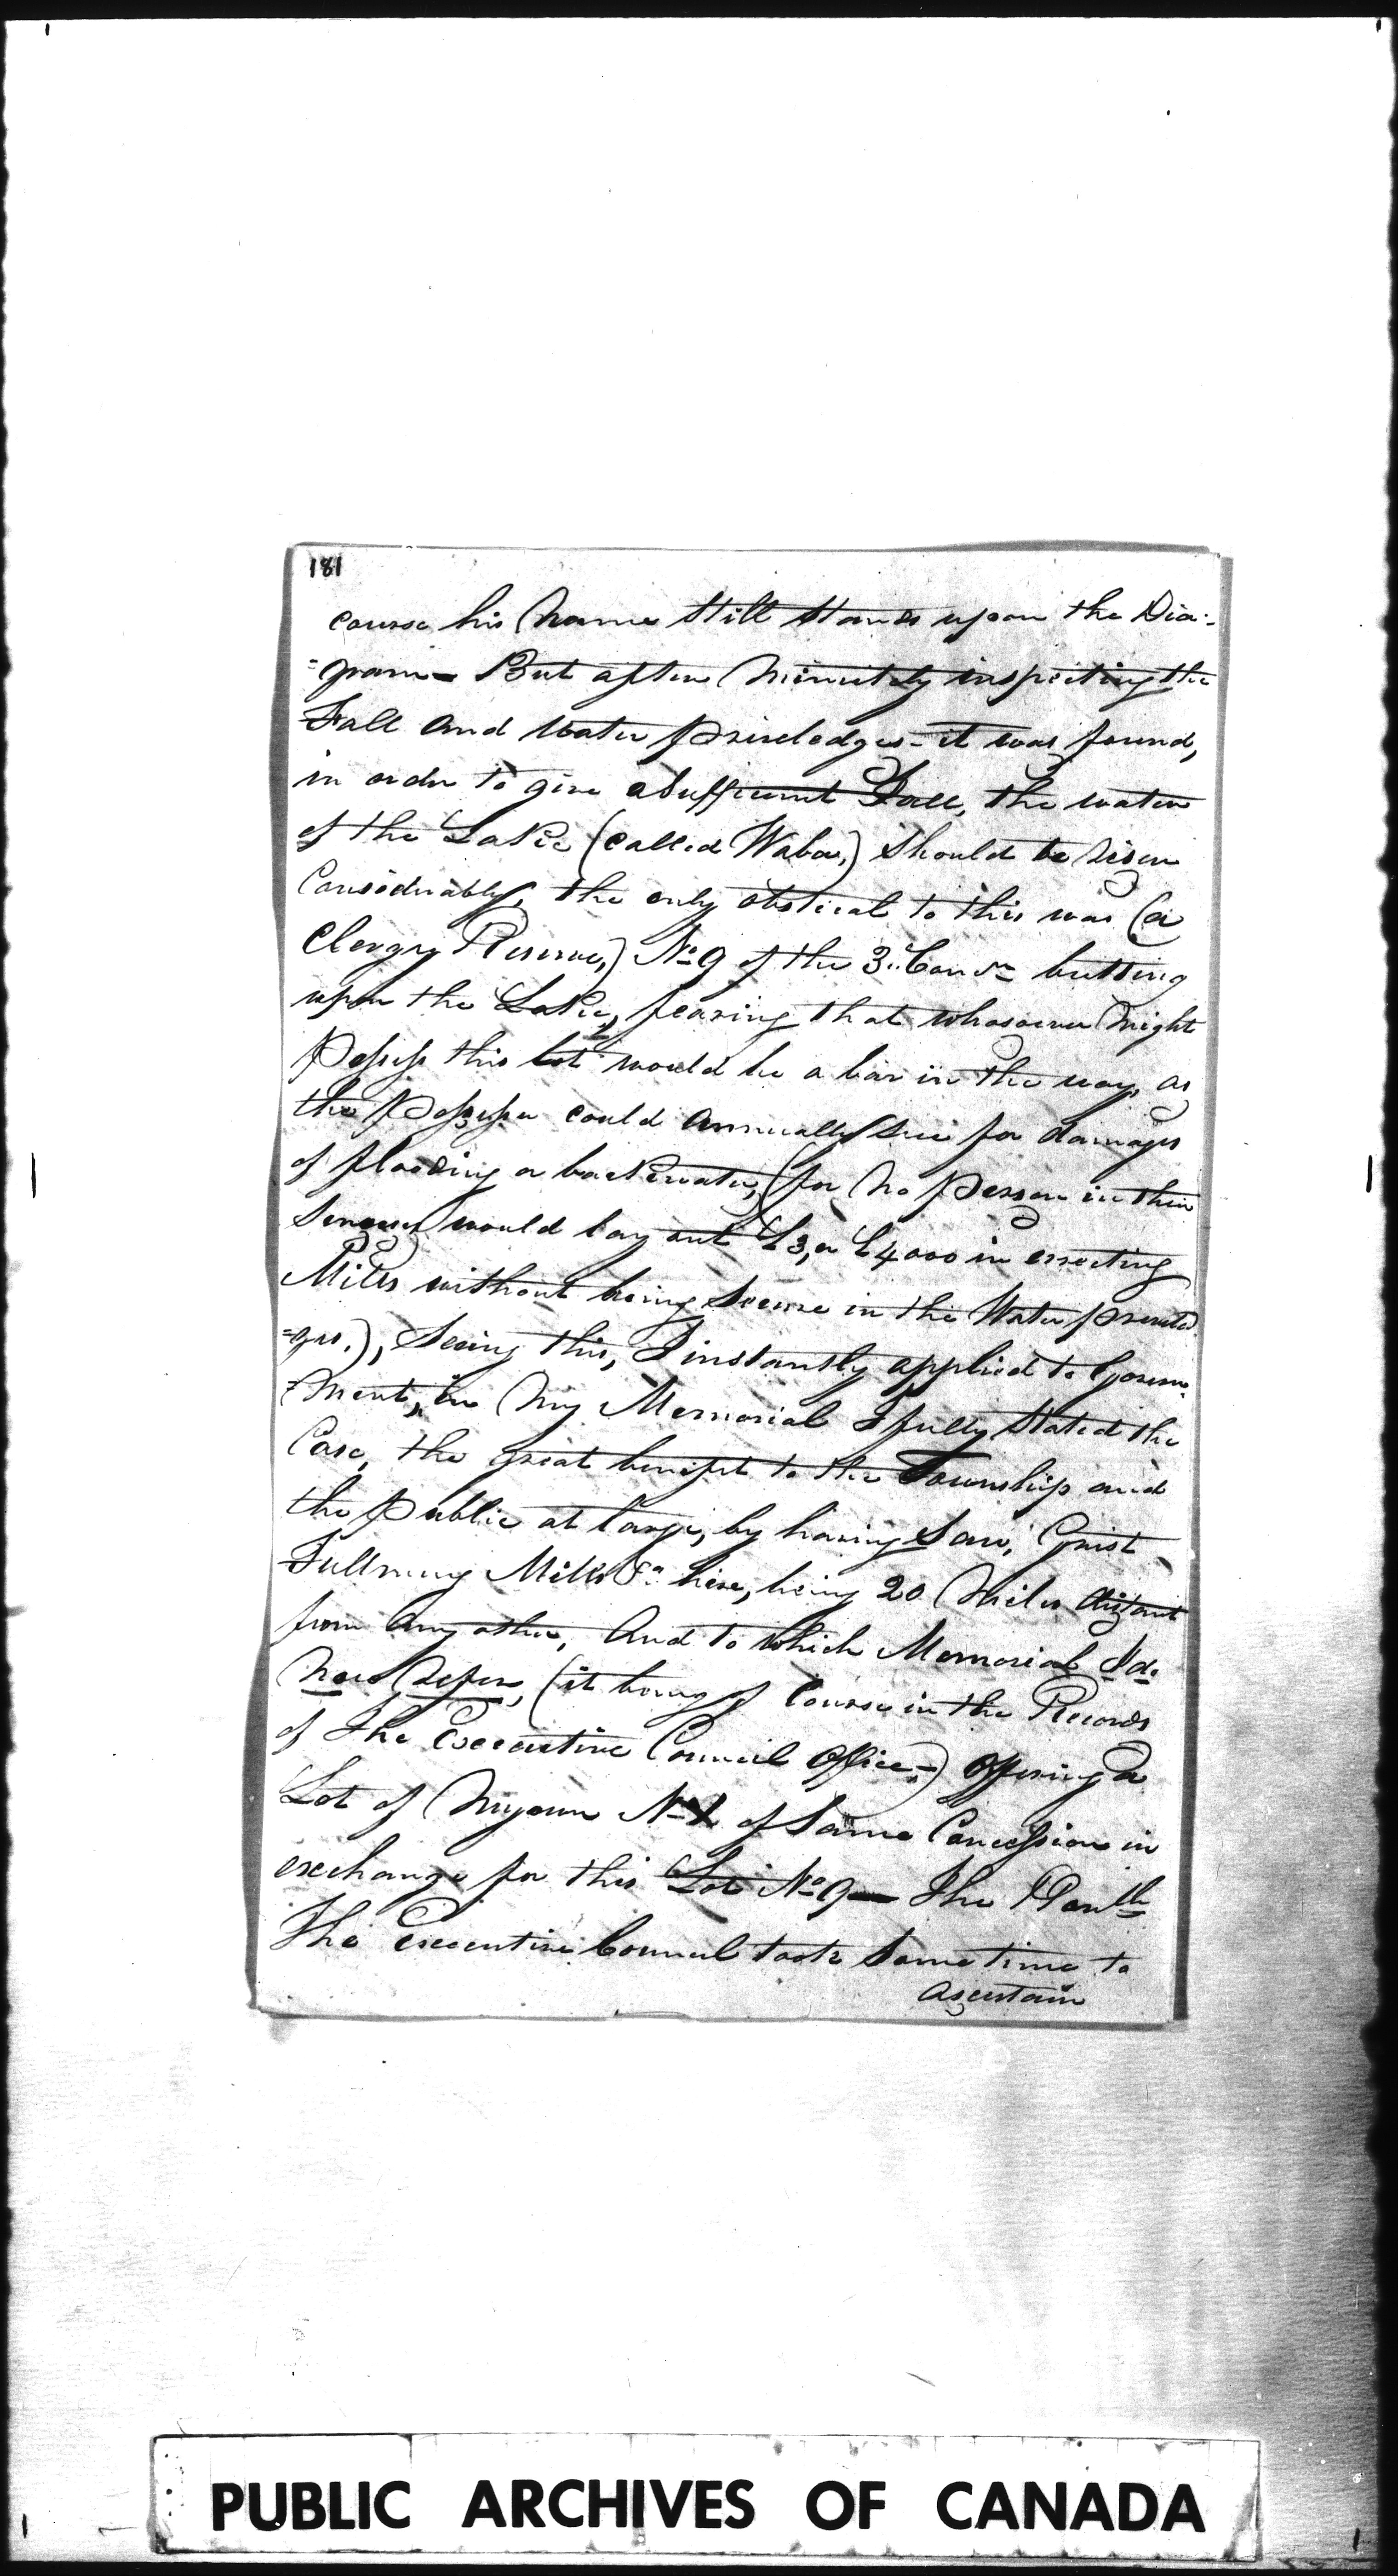 181
course his Name Still Stands upon the Dia-
=gram - But after Minutely inspecting the
Fall and Water Priveledges - it was found,
in order to give a Sufficient Fall, the water
of the Lake (called Waba,) Should be risen
Considerably, the only obstical to this was (a
Clergy Reserve,) No 9 of the 3.. Conn butting
upon the Lake, fearing that whosoever Might
Possess this lot would be a bar in the way, as
the Possessor could annually Sue for damages
of flooding or backwater, (for No Person in their
Senses would lay out £3, or £4000 in errecting
Mills without being Secure in the Water Priveled
=ges.), Seeing this, I instantly applied to Govern-
=ment, in My Memorial I fully Stated the
Case, the great benefit to the Township and
the Public at large, by having Saw, Grist
Fulling Mills &c here, being 20 Miles distant
from any other, And to which Memorial I do
Now Refer, (it being of Course in the Records
of The Executive Council Office,) Offering a
Lot of Myown No of Same Concession in
exchange for this Lot No 9 — The Honble
The Executive Council took Some time to
Ascertain
PUBLIC ARCHIVES OF CANADA